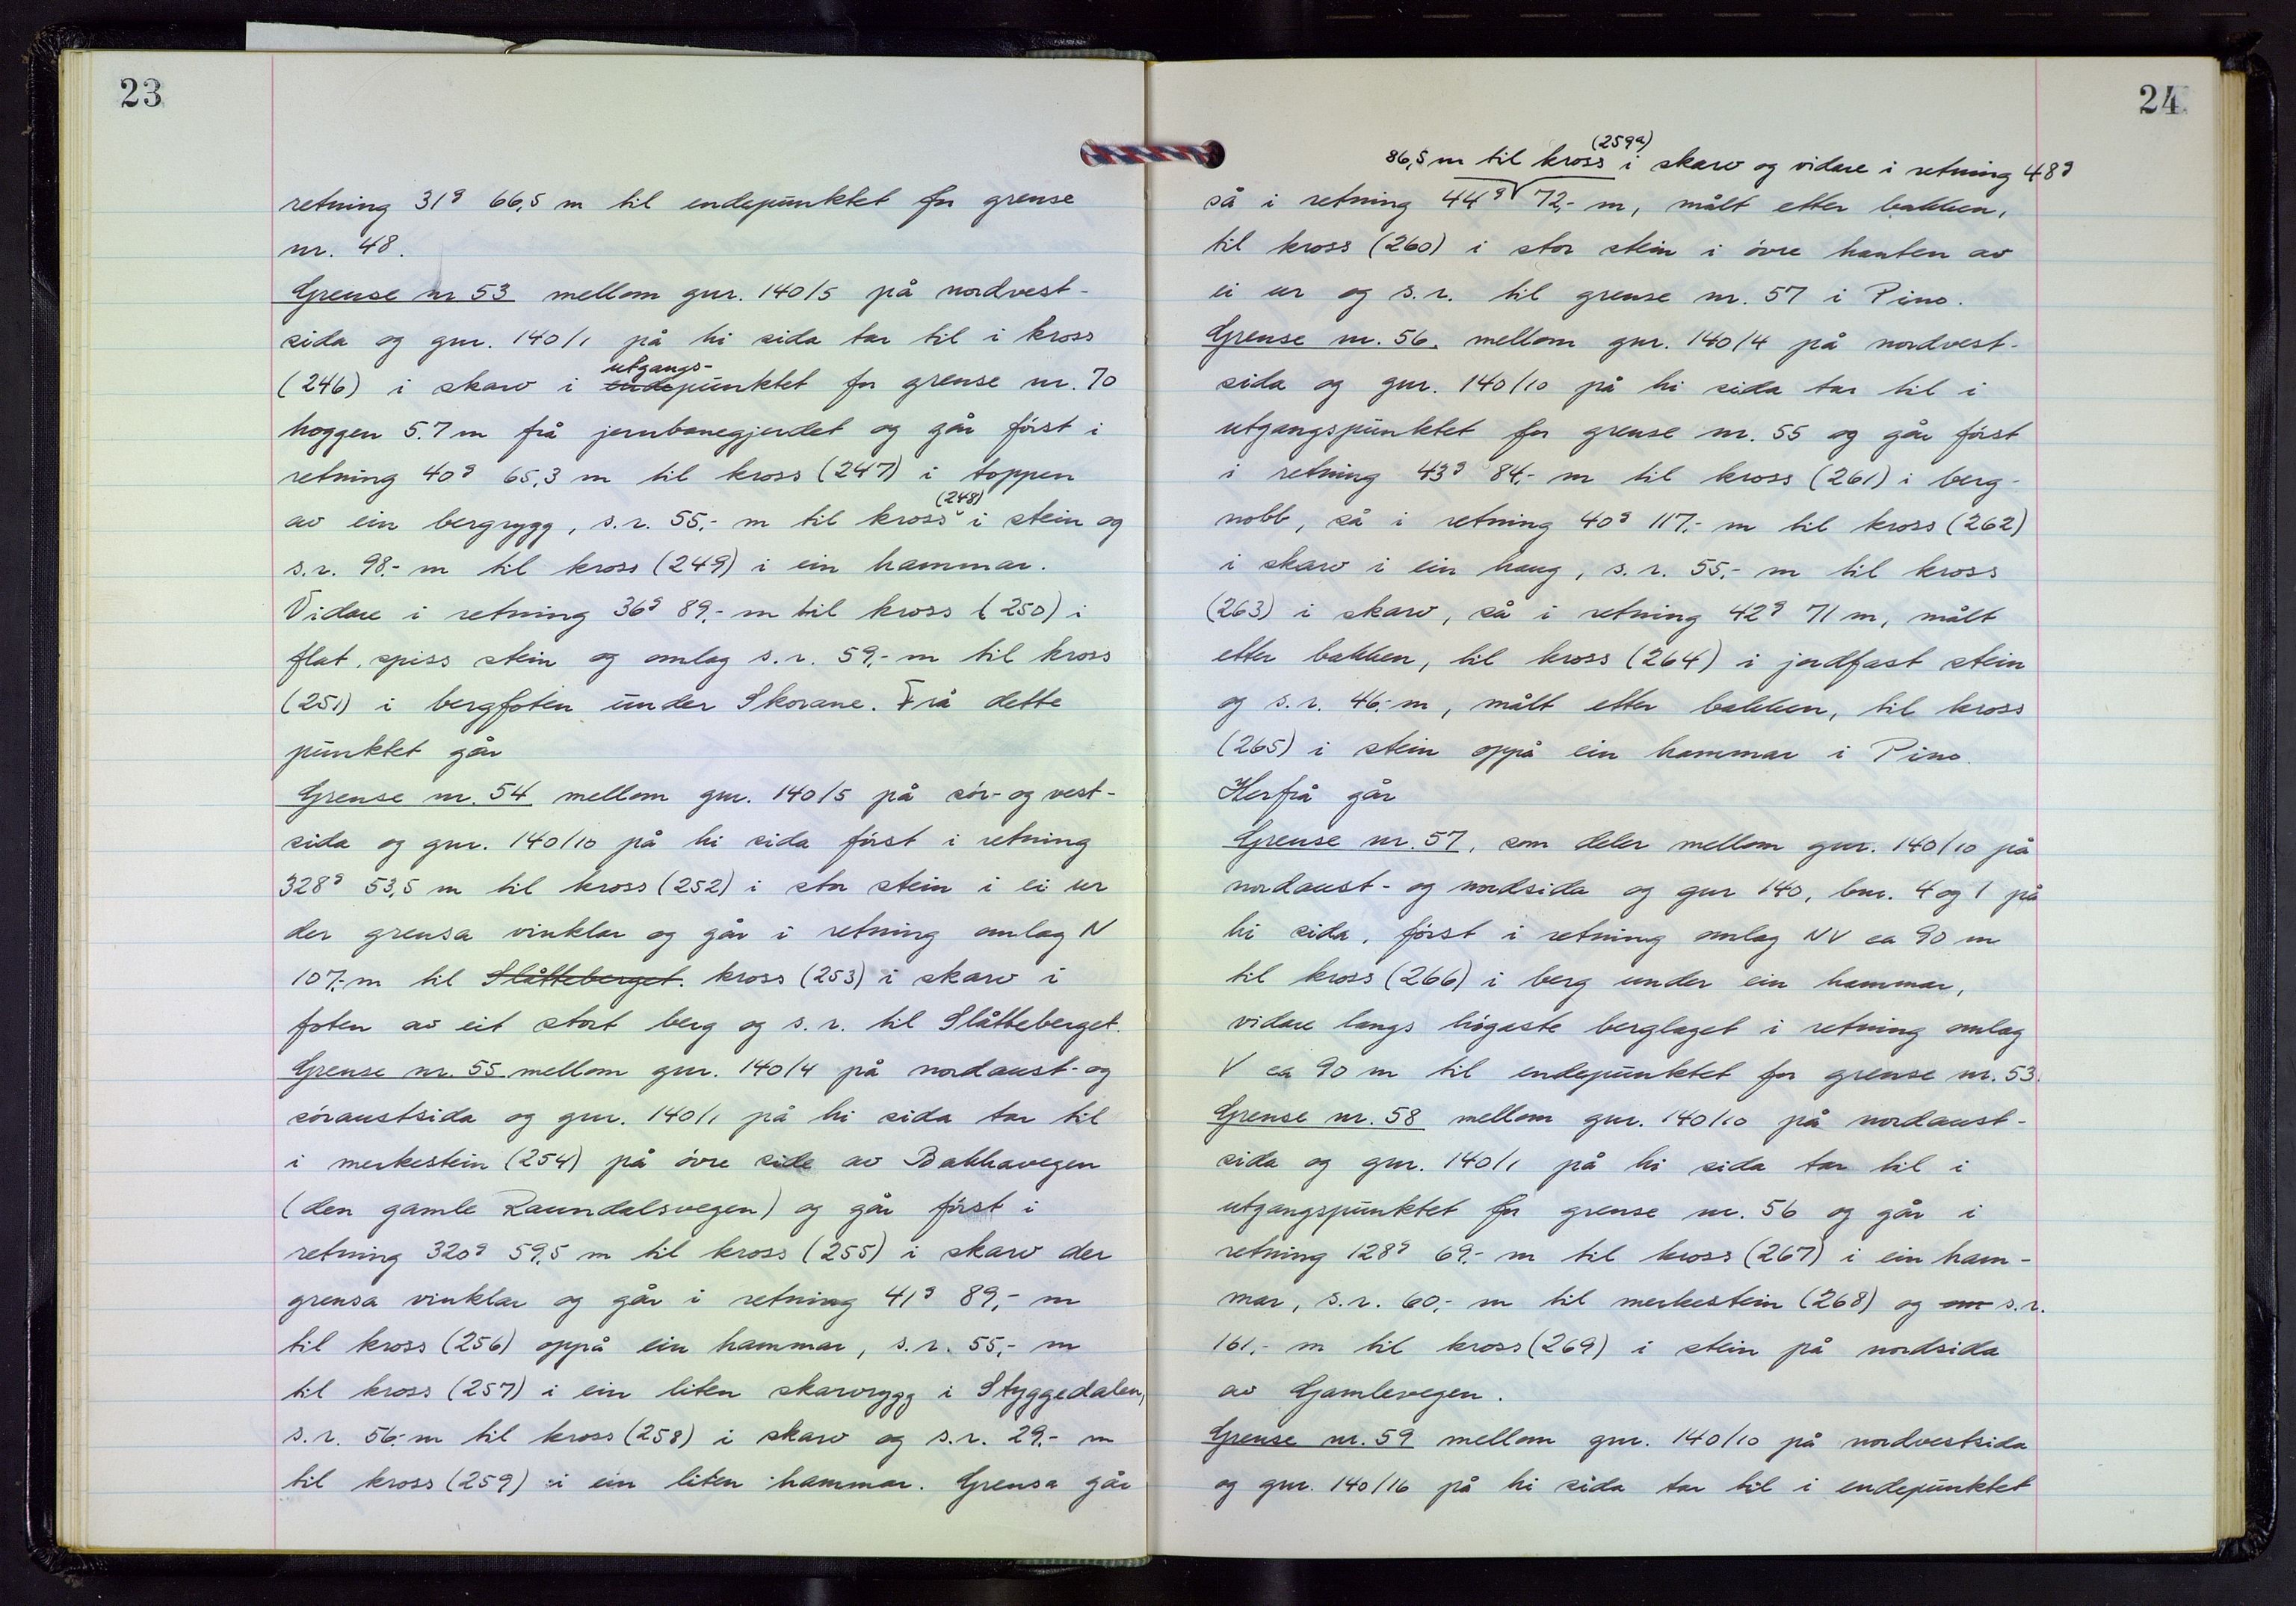 23
retning 31g 66,5 m til endepunktet for grense
nr. 48.
Grense nr 53 mellom gnr. 140/5 på nordvest-
sida og gnr. 140/1 på hi sida tar til i kross
utgangs-
(246) i skarv i endepunktet for grense nr. 70
hoggen 5.7 m frå jernbanegjerdet og går først i
retning 40g 65,3 m til kross (247) i toppen
(248)
av ein bergrygg, s.r. 55,- m til kross i stein og
s.r. 98,- m til kross (249) i ein hammar.
Vidare i retning 36g 89,- m til kross (250) i
flat, spiss stein og omlag s.r. 59,- m til kross
(251) i bergfoten under Skorane. Frå dette
punktet går
Grense nr. 54 mellom gnr. 140/5 på sør- og vest-
sida og gnr. 140/10 på hi sida først i retning
328g 53,5 m til kross (252) i stor stein i ei ur
der grensa vinklar og går i retning omlag N
107,- m til Slåtteberget. kross (253) i skarv i
foten av eit stort berg og s.r. til Slåtteberget.
Grense nr. 55 mellom gnr. 140/4 på nordaust- og
søraustsida og gnr. 140/1 på hi sida tar til
i merkestein (254) på øvre side av Bakkavegen
(den gamle Raundalsvegen) og går først i
retning 320g 59,5 m til kross (255) i skarv der
grensa vinklar og går i retning 41g 89,- m
til kross (256) oppå ein hammar, s.r. 55,- m
til kross (257) i ein liten skarvrygg i Styggedalen,
s.r. 56,- m til kross (258) i skarv og s.r. 29,- m
til kross (259) i ein liten hammar. Grensa går
24
(259a)
86,5 m til kross i skarv og vidare i retning 48g
så i retning 44g 72,- m, målt etter bakken,
til kross (260) i stor stein i øvre kanten av
ei ur og s.r. til grense nr. 57 i Pino.
Grense nr. 56. mellom gnr. 140/4 på nordvest-
sida og gnr. 140/10 på hi sida tar til i
utgangspunktet for grense nr. 55 og går først
i retning 43g 84,- m til kross (261) i berg-
nobb, så i retning 40g 117,- m til kross (262)
i skarv i ein haug, s.r. 55,- m til kross
(263) i skarv, så i retning 42g 71 m, målt
etter bakken, til kross (264) i jordfast stein
og s.r. 46,- m, målt etter bakken, til kross
(265) i stein oppå ein hammar i Pino.
Herfrå går
Grense nr. 57, som deler mellom gnr. 140/10 på
nordaust- og nordsida og gnr 140, bnr. 4 og 1 på
hi sida, først i retning omlag NV ca 90 m
til kross (266) i berg under ein hammar,
vidare langs høgaste berglaget i retning omlag
V ca 90 m til endepunktet for grense nr. 53.
Grense nr. 58 mellom gnr. 140/10 på nordaust-
sida og gnr. 140/1 på hi sida tar til i
utgangspunktet for grense nr. 56 og går i
retning 128g 69,- m til kross (267) i ein ham-
mar, s.r. 60,- m til merkestein (268) og om s.r.
161,- m til kross (269) i stein på nordsida
av Gamlevegen.
Grense nr. 59 mellom gnr. 140/10 på nordvestsida
og gnr. 140/16 på hi sida tar til i endepunktet